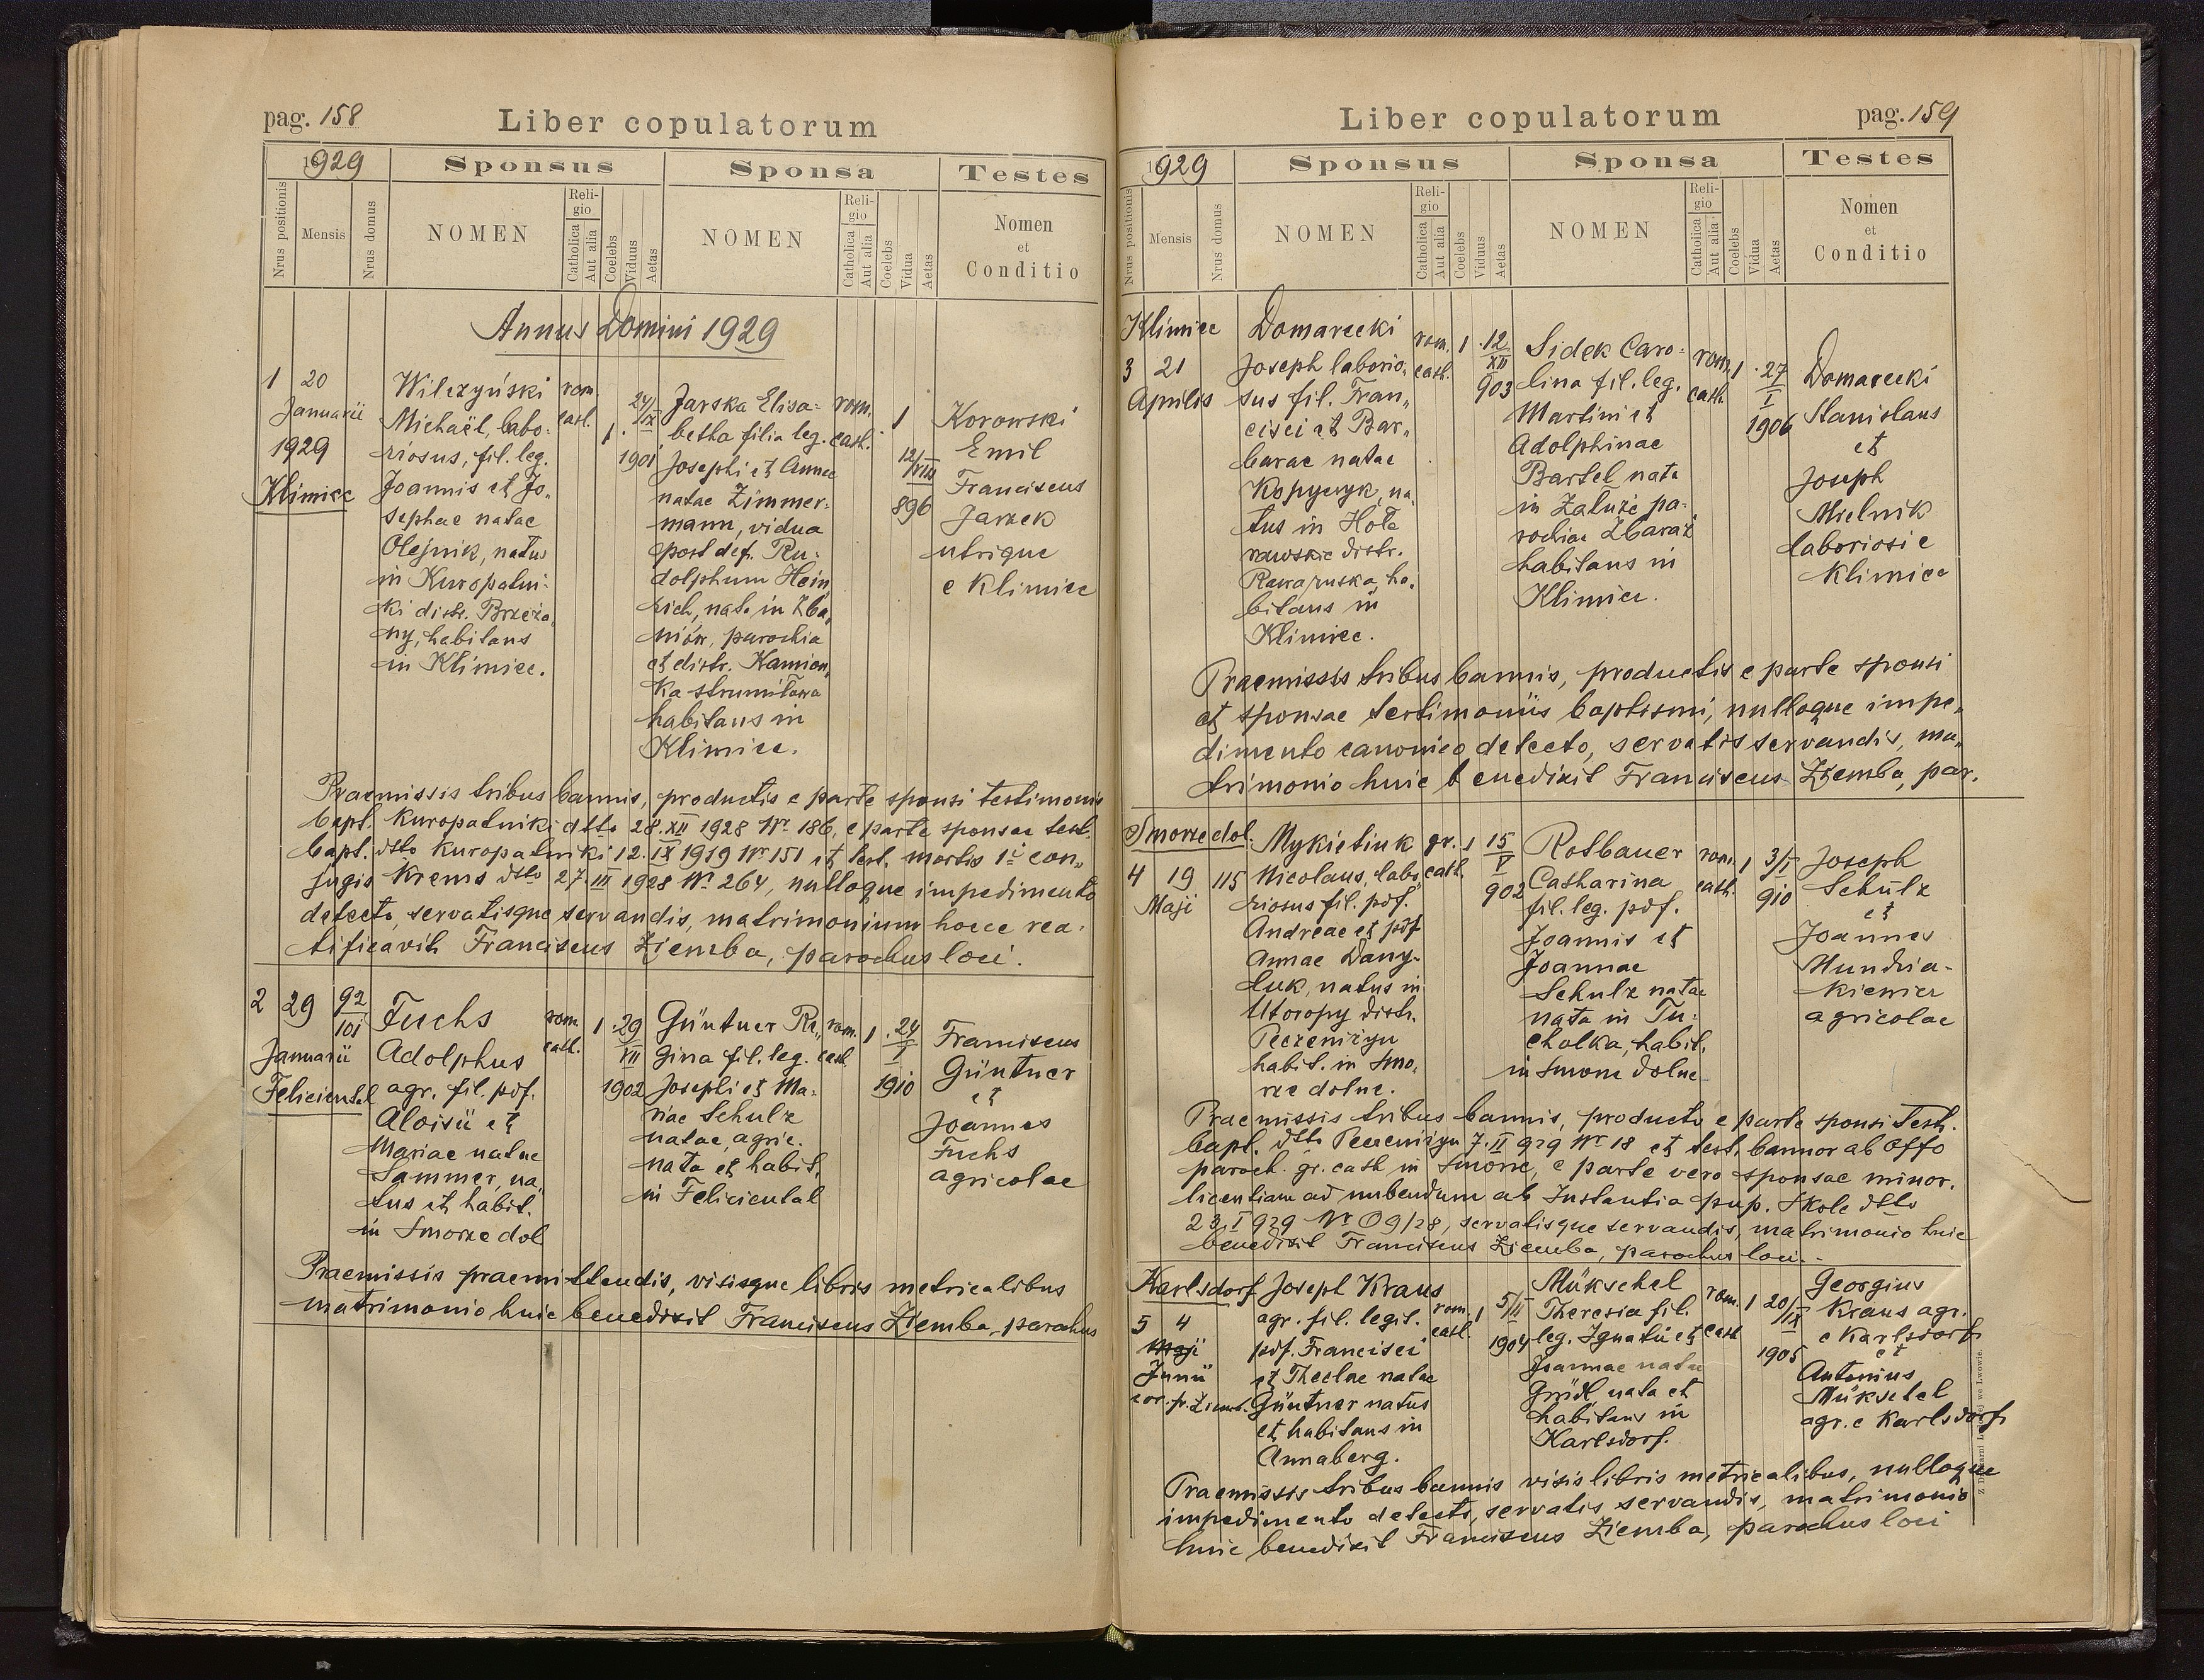 pag. 158
Liber copulatorum
1929
Sponsus
Sponsa
Testes
Nrus positionis
Mensis
Nrus domus
NOMEN
Religio
Catholica
Aut alia
Coelebs
Viduus
Aetas
NOMEN
Religio
Catholica
Aut alia
Coelebs
Vidua
Aetas
Nomen
et
Conditio
Annus Domini 1929
1 20
Januarii
1929
Klimiec
Wilczyński
Michaël, labo-
riosus, fil. leg.
Joannis et Jo„
sephae natae
Olejnik, natus
in Kuropatni-
ki distr. Brzeża„
ny, habitans
in Klimiec.
rom.
cath.
1.
24/IX
1901
Jarska Elisa-
betha filia leg.
Josephi et Annae
natae Zimmer-
mann, vidua
post def. Ru-
dolphum Hein„
rich, nata in Zba„
niów, parochia
et distr. Kamion„
ka strumiłowa
habitans in
Klimiec.
rom.
cath.
1
12/VIII
896
Korowski
Emil
Franciscus
Jarzek
utrique
e Klimiec
Praemissis tribus bannis, productis e parte sponsi testimoniis
bapt. Kuropatniki dtto 28.XII 1928 Nr 186, e parte sponsae test.
bapt. dtto Kuropatniki 12.IX 1919 Nr 151 et test. mortis 1i con„
jugis Krems dtto 27.III 1928 Nr 264, nulloque impedimento
detecto, servatisque servandis, matrimonium hocce rea-
tificavit Franciscus Ziemba, parochus loci.
2 29 92/101
Januarii
Felicientel
Fuchs
Adolphus
agr. fil. pdf.
Aloisii et
Mariae natae
Sammer, na„
tus et habit.
in Smorze dol
rom.
cath.
1 .29
XII
1902
Güntner Re„
gina fil. leg.
Josephi et Ma-
riae Schulz
natae, agric.
nata et habit.
in Felicientel
rom.
cath
1 .24
I
1910
Franciscus
Güntner
et
Joannes
Fuchs
agricolae
Praemissis praemittendis, visisque libris metricalibus
matrimonio huic benedixit Franciscus Ziemba, parochus
Liber copulatorum
pag. 159
1929
Sponsus
Sponsa
Testes
Nrus positionis
Mensis
Nrus domus
NOMEN
Religio
Catholica
Aut alia
Coelebs
Viduus
Aetas
NOMEN
Religio
Catholica
Aut alia
Coelebs
Vidua
Aetas
Nomen
et
Conditio
Klimiec
3 21
Aprilis
Domarecki
Joseph laborio-
sus fil. Fran„
cisci et Bar„
barae natae
Kopyczyk, na„
tus in Hole
rawskie distr.
Rawa ruska, ha„
bitans in
Klimiec.
rom.
cath.
1 .12
XII
903
Sidek Caro-
lina fil. leg.
Martini et
Adolphinae
Bartel nata
in Załuże pa-
rochiae Zbaraż
habitans in
Klimiec.
rom.
cath.
1 .27
I
1906
Domarecki
Stanislaus
et
Joseph
Mielnik
laboriosi e
Klimiec
Praemissis tribus bannis, productis e parte sponsi
et sponsae testimoniis baptismi, nulloque impe„
dimento canonico detecto, servatis servandis, ma„
trimonio huic benedixit Franciscus Ziemba, par.
Smorze dol.
4 19 115
Maji
Mykietiuk
Nicolaus, labo
riosus fil. pdf.
Andreae et pdf
Annae Dany-
luk, natus in
Utoropy distr.
Peczeniżyn
habit. in Smo„
rze dolne.
gr.
cath.
1 15
V
902
Rotbauer
Catharina
fil. leg. pdf.
Joannis et
Joannae
Schulz natae
nata in Tu-
cholka, habit.
in Smorze dolne
rom.
cath.
1 3/I
910
Joseph
Schulz
et
Joannes
Mundria-
kiewicz
agricolae
Praemissis tribus bannis, producto e parte sponsi test.
bapt. dtto Peczeniżyn 7.II 929 Nr 18 et test. bannor ab Offo
paroch. gr. cath in Smorze, e parte vero sponsae minor.
licentiam ad nubendum ab Instantia pup. Skole dtto
23.I 929 Nr O 9/28, servatisque servandis, matrimonio huic
benedixit Franciscus Ziemba, parochus loci.
Karlsdorf
5 4
Maji
Junii
cor. pr. Ziemb.
Joseph Kraus
agr. fil. legit.
pdf. Francisci
et Theclae natae
Güntner natus
et habitans in
Annaberg.
rom.
cath.
1 5/II
1904
Mükschel
Theresia fil.
leg. Ignatii et
Joannae natae
Gridl nata et
habitans in
Karlsdorf.
rom.
cath
1 20/IX
1905
Georgius
Kraus agr.
e Karlsdorf
et
Antonius
Mükschel
agr. e Karlsdorf
Praemissis tribus bannis visis libris metricalibus, nulloque
impedimento detecto, servatis servandis, matrimonio
huic benedixit Franciscus Ziemba, parochus loci